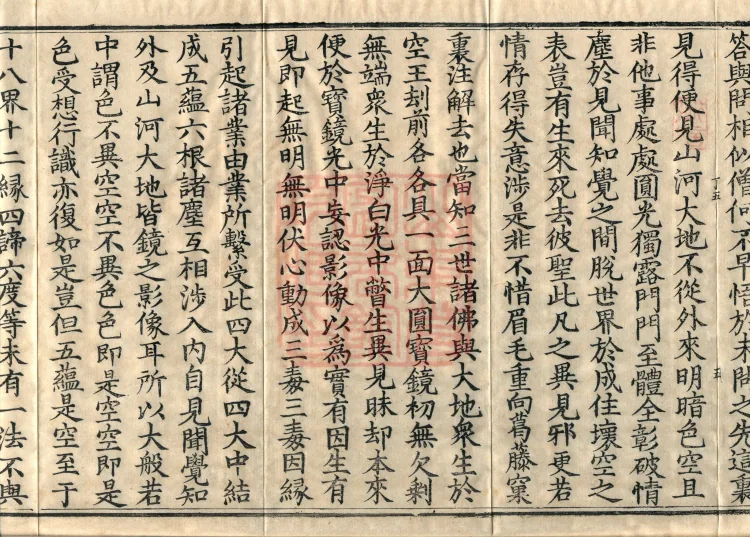 答與問相似僧何不早悟於未開之先這裏
見得便見山河大地不從外來明暗色空且
非他事處處圓光獨露門門至體全彰破情
塵於見聞知覺之間脫世界於成住壞空之
表豈有生來死去彼聖此凡之異見邪更若
情存得失意涉是非不惜眉毛重向葛藤窠
裏注解去也當知三世諸佛與大地衆生於
空王刦前各各具一面大圓寶鏡初無欠剩
無端衆生於淨白光中瞥生異見昧却本來
便於寶鏡光中妄認影像以爲實有因生有
見即起無明無明伏心動成三毒三毒因緣
引起諸業由業所繫受此四大從四大中結
成五蘊六根諸塵互相涉入內自見聞覺知
外及山河大地皆鏡之影像耳所以大般若
中謂色不異空空不異色色即是空空即是
色受想行識亦復如是豈但五蘊是空至于
十八界十二緣四諦六度等未有一法不與